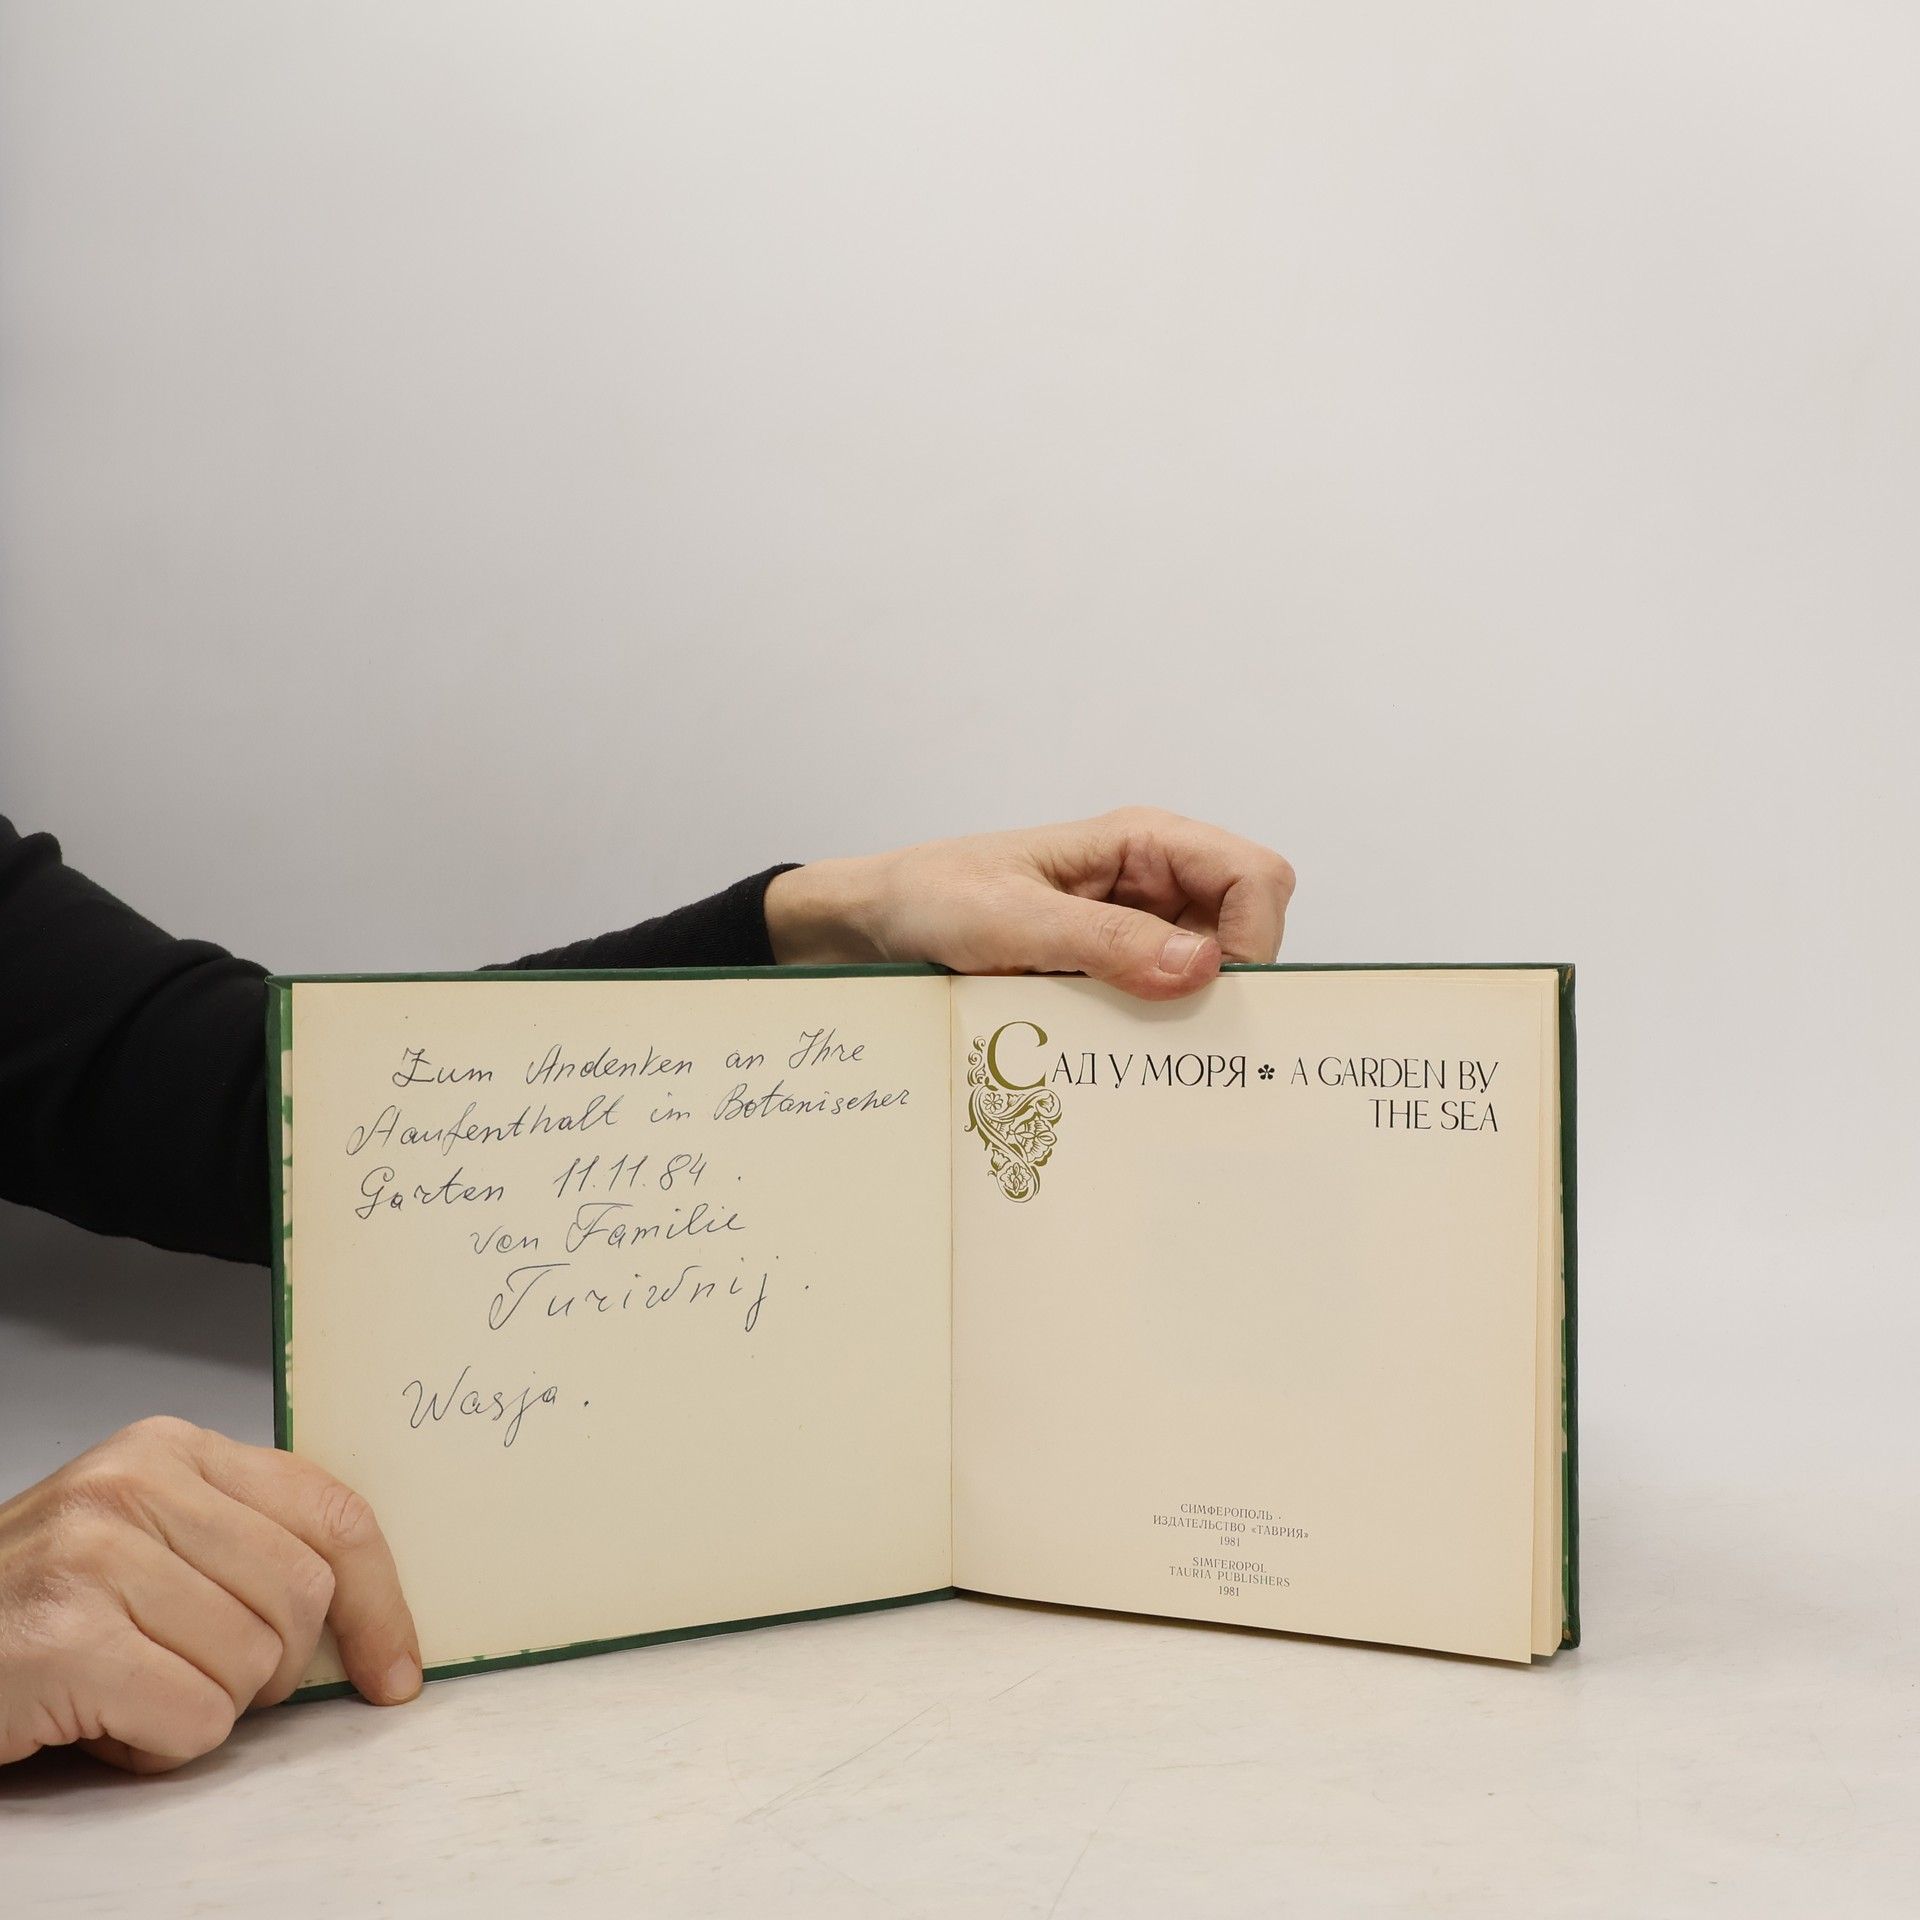 Zum Andenken an Ihre
Aaufenthalt im Botanischer
Garten 11.11.84.
von Familie
Turiwnij.
Wasja.
САД У МОРЯ * A GARDEN BY
THE SEA
СИМФЕРОПОЛЬ ·
ИЗДАТЕЛЬСТВО «ТАВРИЯ»
1981
SIMFEROPOL
TAURIA PUBLISHERS
1981